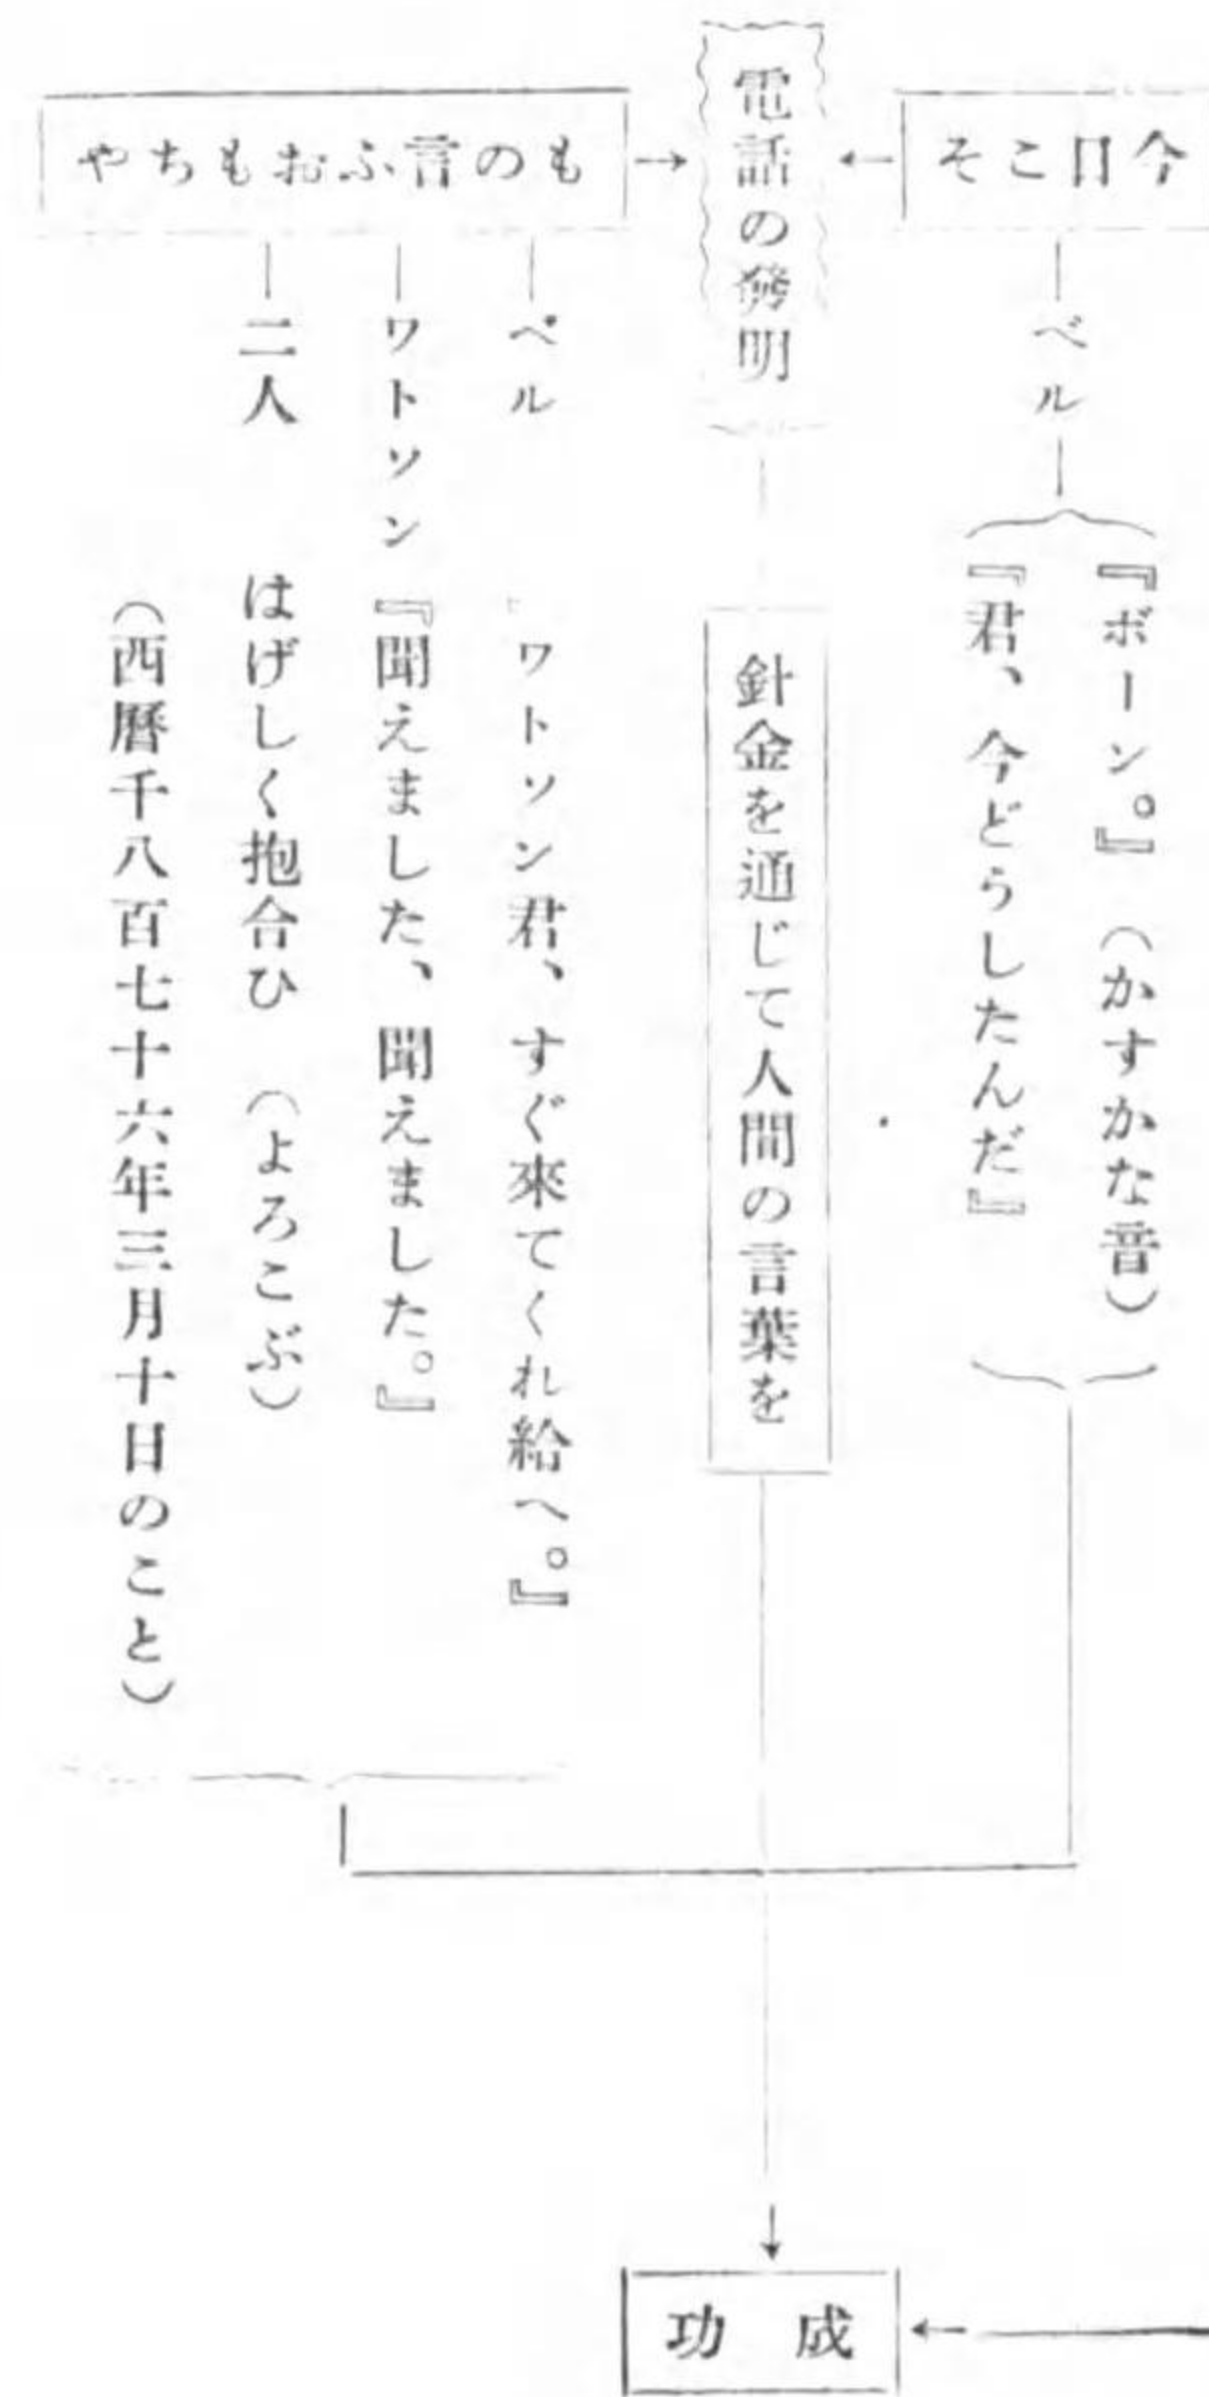 今日こそ
ベル
『ボーン。』（かすかな音）
『君、今どうしたんだ』
電話の發明
針金を通じて人間の言葉を
もの言ふおもちや
ベル
ワトソン君、すぐ來てくれ給へ。』
ワトソン
『聞えました、聞えました。』
二人
はげしく抱合ひ　（よろこぶ）
（西暦千八百七十六年三月十日のこと）
成功